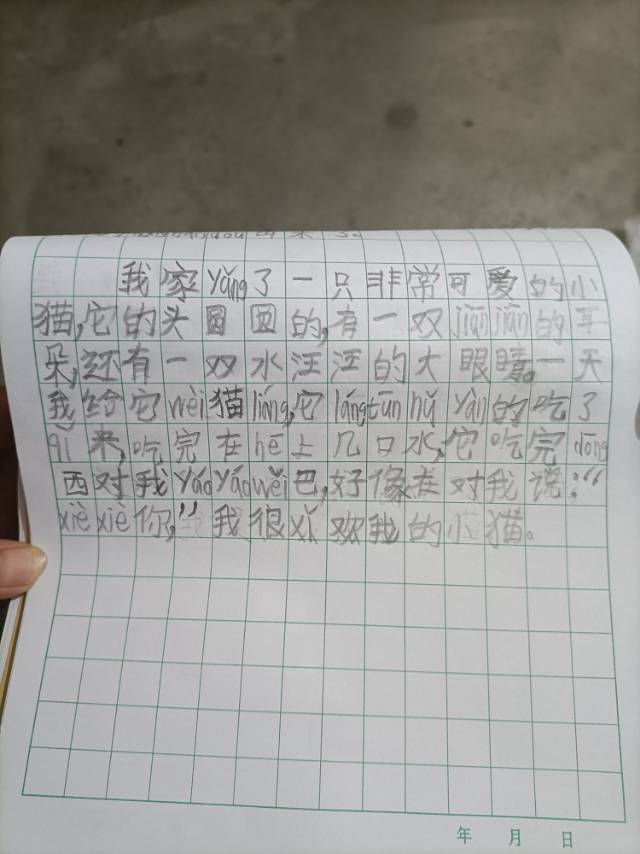 我家yǎng了一只非常可爱的小
猫,它的头圆圆的,有一双jiānjiān的耳
朵,还有一双水汪汪的大眼睛。一天
我给它wèi猫liáng,它lángtūn hǔ yàn的吃了
qǐ来,吃完在hē上几口水,它吃完dōng
西对我yáoyáowěi巴,好像在对我说:“
xièxiè你,”我很xǐ欢我的小猫。
年 月 日